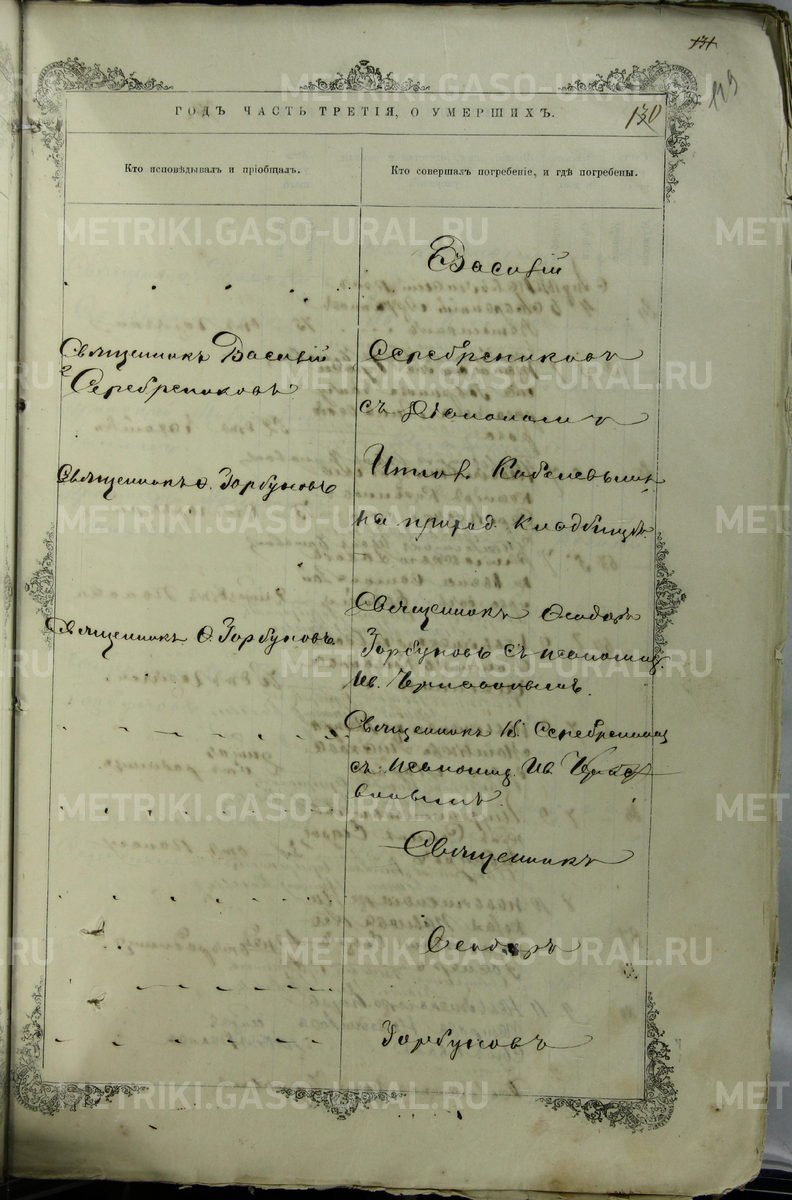 131
119
ГОДЪ ЧАСТЬ ТРЕТІЯ, О УМЕРШИХЪ.
130
Кто исповѣдывалъ и пріобщалъ.
Кто совершалъ погребеніе, и гдѣ погребены.
METRIKI.GASO-URAL.RU
Василій
Священникъ Василій
Серебрениковъ
Серебрениковъ
съ
Священникъ Ѳ. Горбуновъ
Кобелевымъ
на приход. кладбищѣ.
Священникъ Ѳ. Горбуновъ.
Священникъ Ѳеодоръ
Горбуновъ съ псаломщ.
Ив.
Священникъ В. Серебренник
съ псаломщ. Ив.
Священникъ
Ѳеодоръ
Горбуновъ